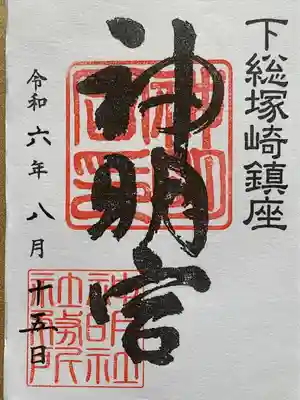 下総塚崎鎮座
神明宮
令和六年八月十五日
神明社
社務所